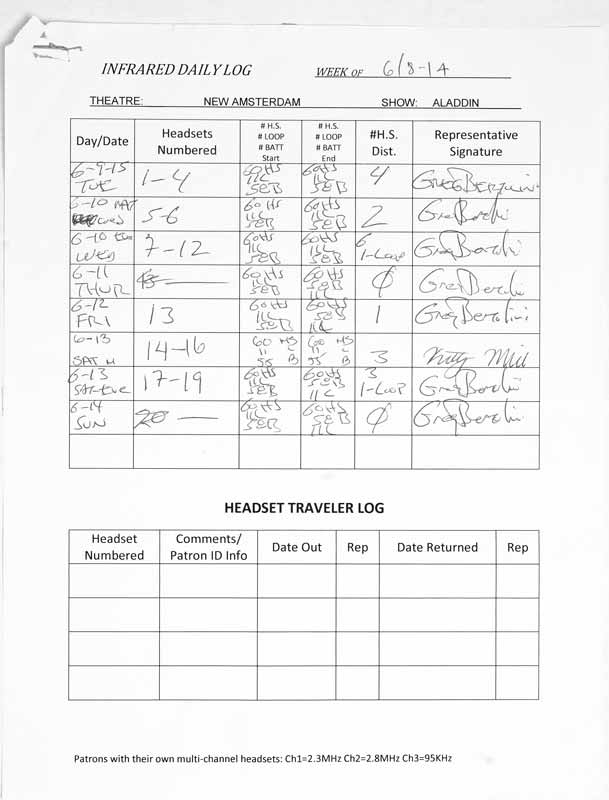 INFRARED DAILY LOG WEEK OF 6/8-14
THEATRE: NEW AMSTERDAM SHOW: ALADDIN
Day/Date Headsets Numbered # H.S. # LOOP # BATT Start # H.S. # LOOP # BATT End #H.S. Dist. Representative Signature
6-9-15 TUE 1-4 60HS 11L 5EB 60HS 11L 5EB 4 Greg
6-10 MAT WED 5-6 60HS 11L 5EB 60HS 11L 5EB 2 Greg
6-10 Eve WED 7-12 60HS 11L 5EB 60HS 11L 5EB 6 1-Loop Greg
6-11 THUR 60HS 11L 5EB 60HS 11L 5EB Ø Greg
6-12 FRI 13 60HS 11L 5EB 60HS 5EB 11L 1 Greg
6-13 SAT M 14-16 60 HS 11 L 55 B 60 HS 11 L 55 B 3
6-13 SAT-Eve 17-19 60HS 11L 5EB 60HS 5EB 11L 3 1-Loop Greg
6-14 SUN 20 — 60HS 11L 5EB 60HS 5EB 11L Ø Greg
HEADSET TRAVELER LOG
Headset Numbered Comments/ Patron ID Info Date Out Rep Date Returned Rep
Patrons with their own multi-channel headsets: Ch1=2.3MHz Ch2=2.8MHz Ch3=95KHz